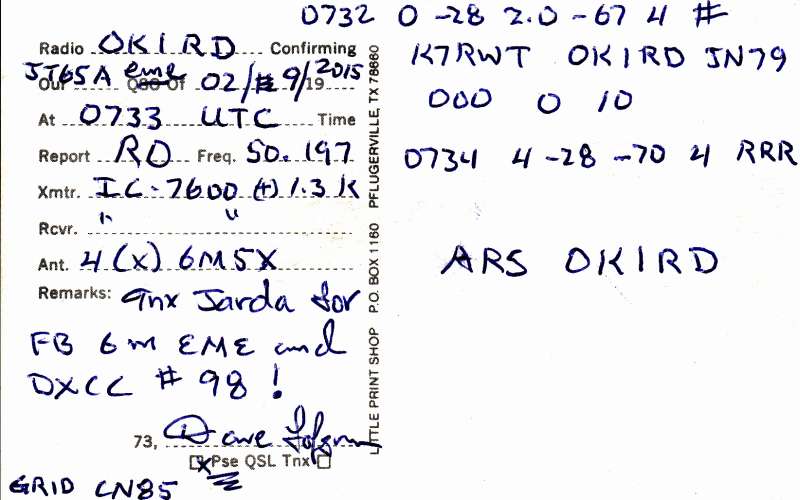 Radio OK1RD Confirming
JT65A eme
Our QSO Of 02/9/2015 19
At 0733 UTC Time
Report RO Freq. 50.197
Xmtr. IC-7600 (+) 1.3 K
Rcvr. " "
Ant. 4 (X) 6M5X
Remarks: Tnx Jarda for
FB 6m EME and
DXCC # 98 !
73, Dave
Pse QSL Tnx
GRID CN85
LITTLE PRINT SHOP P.O. BOX 1160 PFLUGERVILLE, TX 78660
0732 0 -28 2.0 -67 4 #
K7RWT OK1RD JN79
OOO 0 10
0734 4 -28 -70 4 RRR
ARS OK1RD